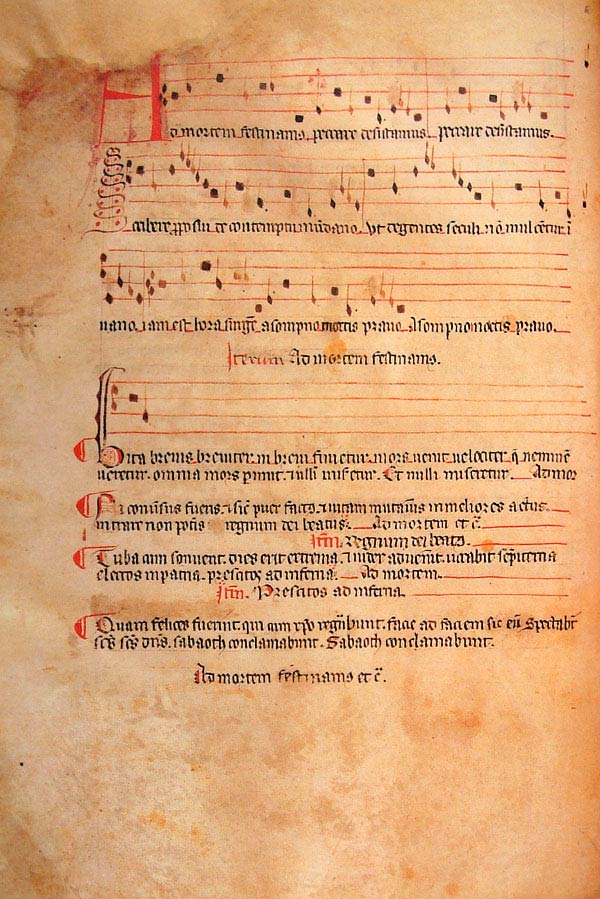 Ad mortem festinamus peccare desistamus peccare desistamus.
Scribere ꝓposui de contemptu mu̅dano vt degentes seculi no̅ mulcentur i̅
uano iam est hora surge̅ a sompno mortis prauo Asompno mortis prauo.
Iterum Ad mortem festinamus.
Vita breuis breuiter in breui finietur mors uenit uelociter q̅ nemine̅
ueretur. omnia mors ꝑimit ⁊ nulli miseretur. Et nulli miseretur Ad mor
Ni conu̅sus fueris ⁊ sic̅ puer ⁊ uitam mutau̅is in meliores actus.
intrare non potis regnum dei beatus. Ad mortem et c̅.
Ite̅m. Regnum dei beatus.
Tuba cum sonuerit dies erit extrema ⁊ iudex aduen̅it uocabit se̅piterna
electos in patria. prescitos ad inferna. Ad mortem.
Ite̅m. Prescitos ad inferna.
Quam felices fuerint qui cum xp̅o regn̅abunt. facie ad faciem sic eu̅ spectabt̅
sc̅s sc̅s dn̅s. sabaoth conclamabunt. Sabaoth conclamabunt.
Ad mortem festinamus et c̅.